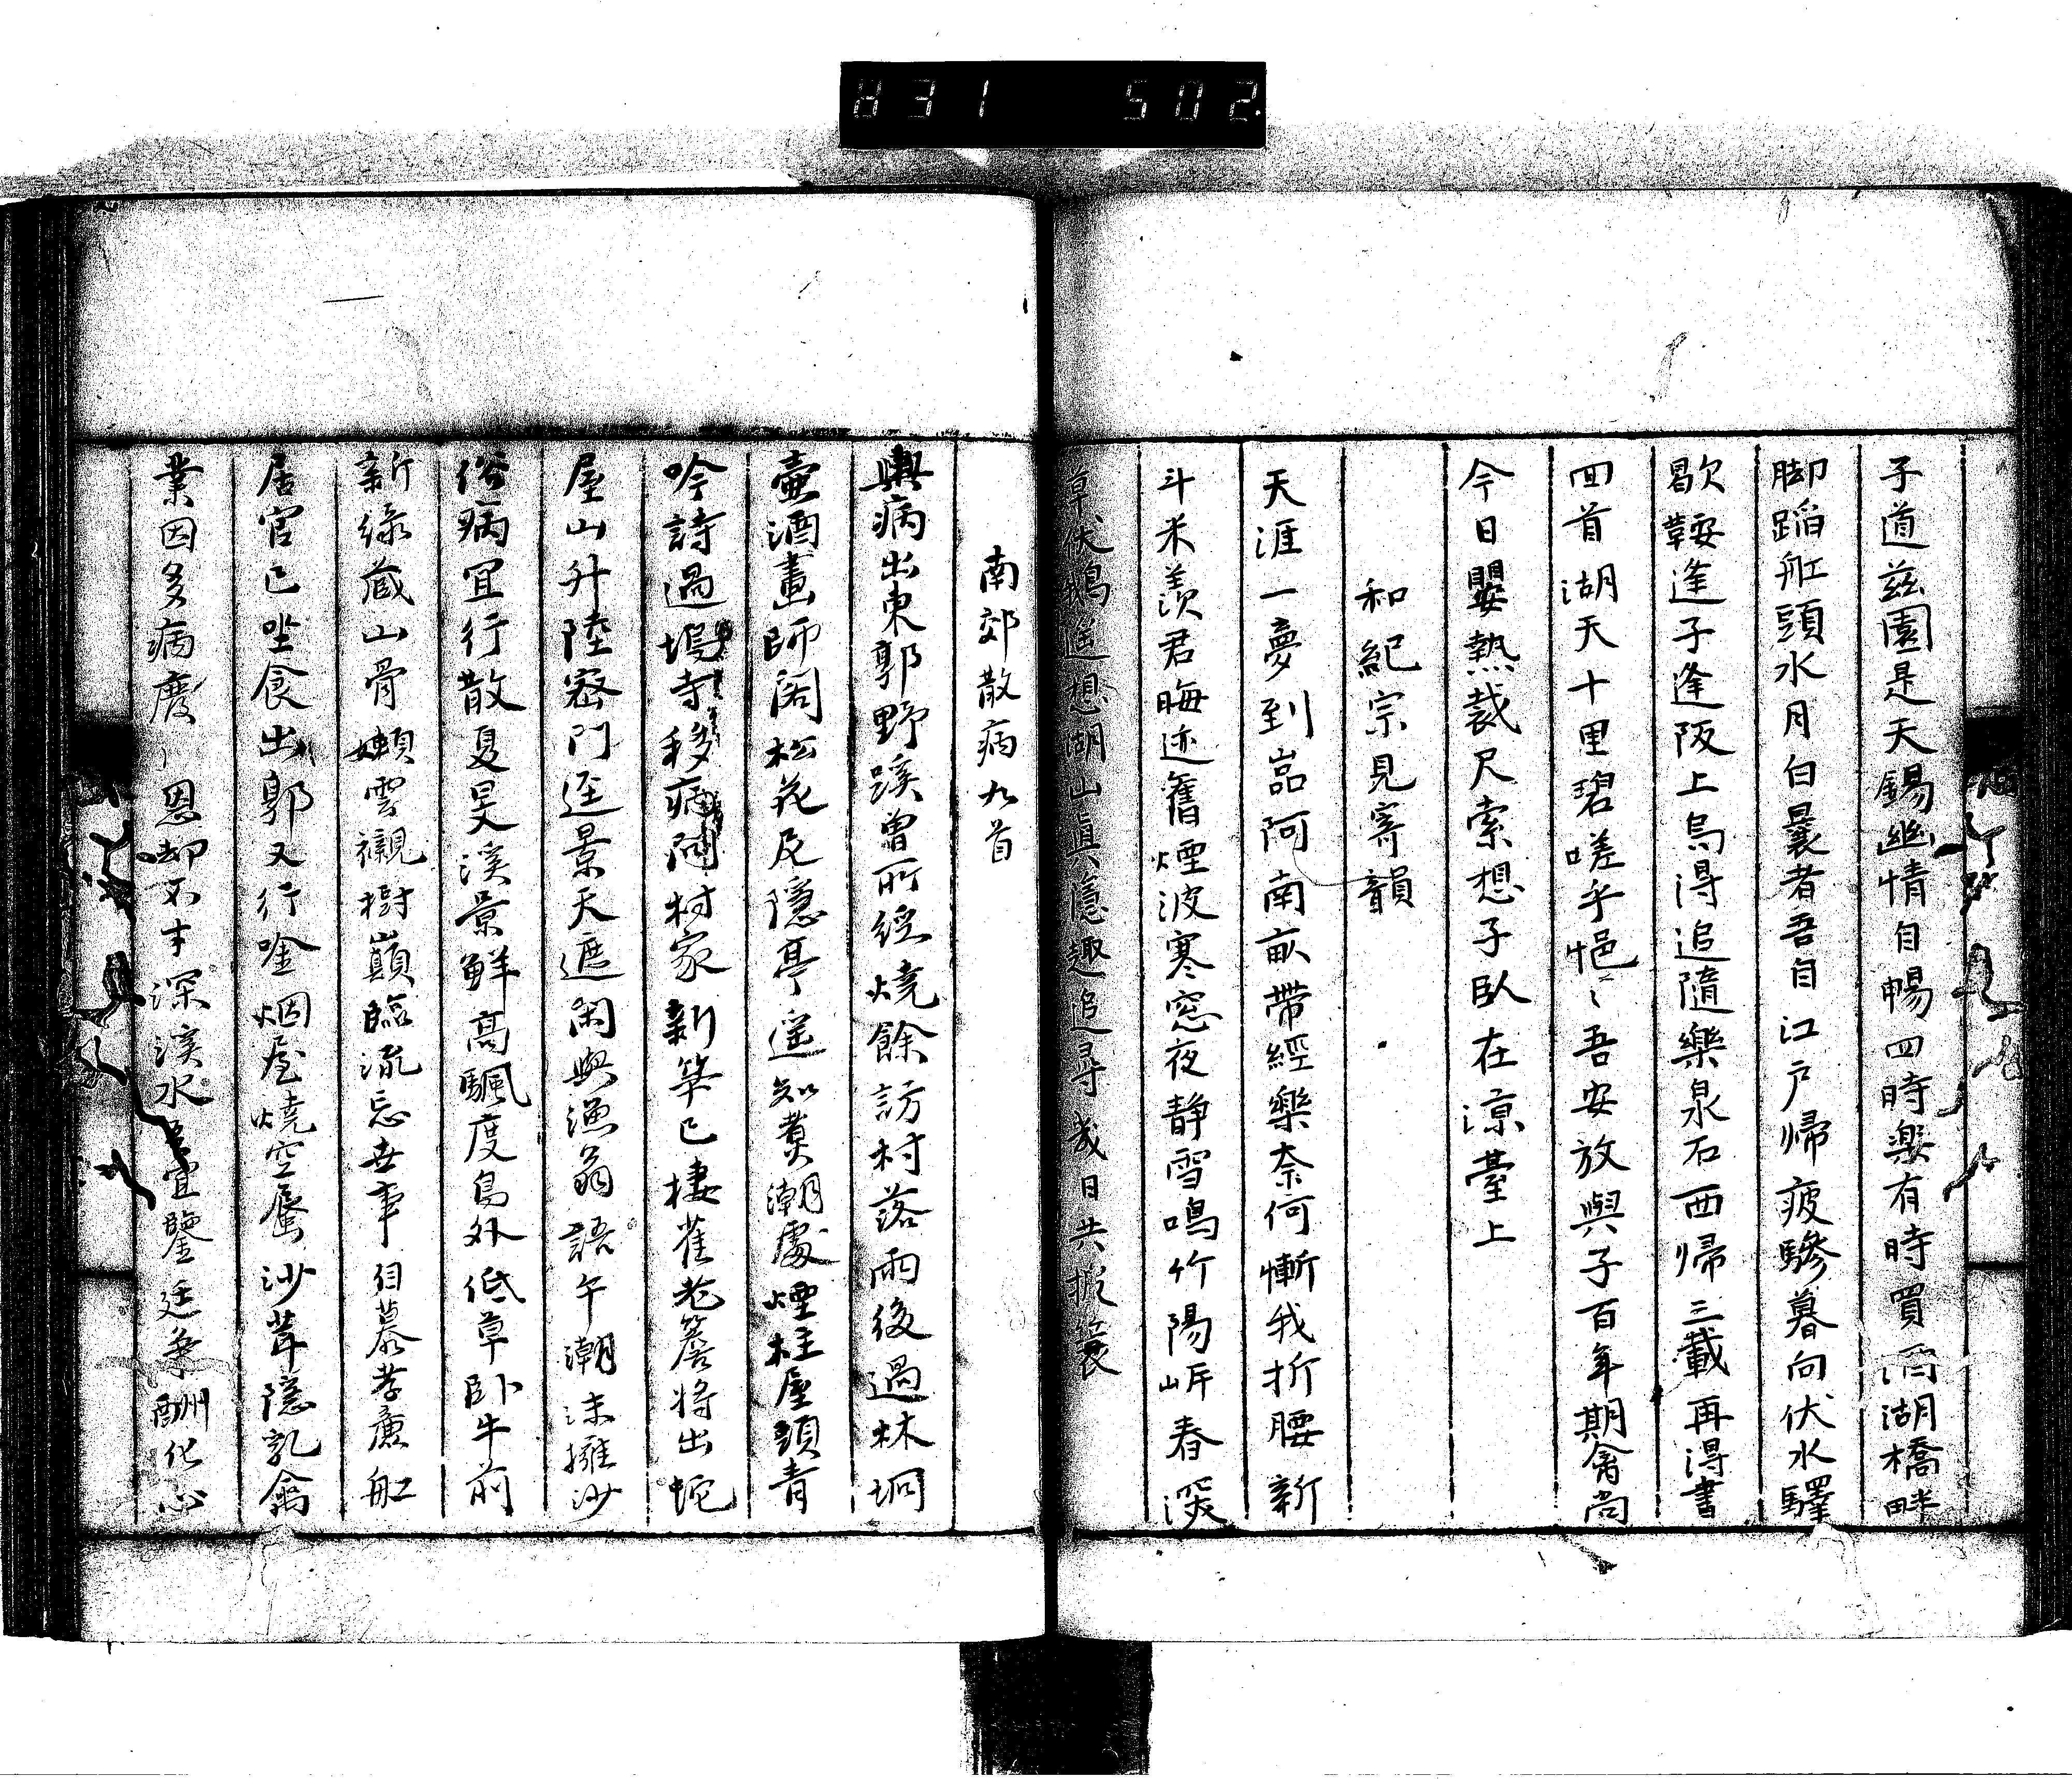 831 502
子道茲園是天錫幽情自暢四時樂有時買酒湖橋畔
脚蹈舡頭水月白曩者吾自江戶帰疲驂暮向伏水驛
歇鞍逢子逢阪上烏得追隨樂泉石西帰三載再得書
回首湖天十里碧嗟乎悒〻吾安放與子百年期禽尚
今日嬰熱裁尺索想子臥在涼臺上
和紀宗見寄韻
天涯一夢到嵓阿南畝帶經樂奈何慚我折腰新
斗米羨君晦迹舊煙波寒窓夜静雪鳴竹陽岸春深
草伏鵝遥想湖山真隱趣追尋幾日共披簑
南郊散病九首
輿病出東郭野蹊曽所經燒餘訪村落雨後過林坰
壷酒畫師閣松花及隱亭遥知煑潮處煙柱屋頭青
吟詩過塢寺移病問村家新築已棲雀老簷将出蛇
屋山升陸密門逕景天遮閑與漁翁語午潮沫擁沙
俗病宜行散夏旻溪景鮮高颿度島外低草卧牛前
新緑蔵山骨嬾雲襯樹巔臨流忘世事自慕孝廉舡
居官已坐食出郭又行唫烟屋燒空蜃沙茸隱乳禽
業因多病廢〻恩却不才深溪水宜鑒廷兼酬化心